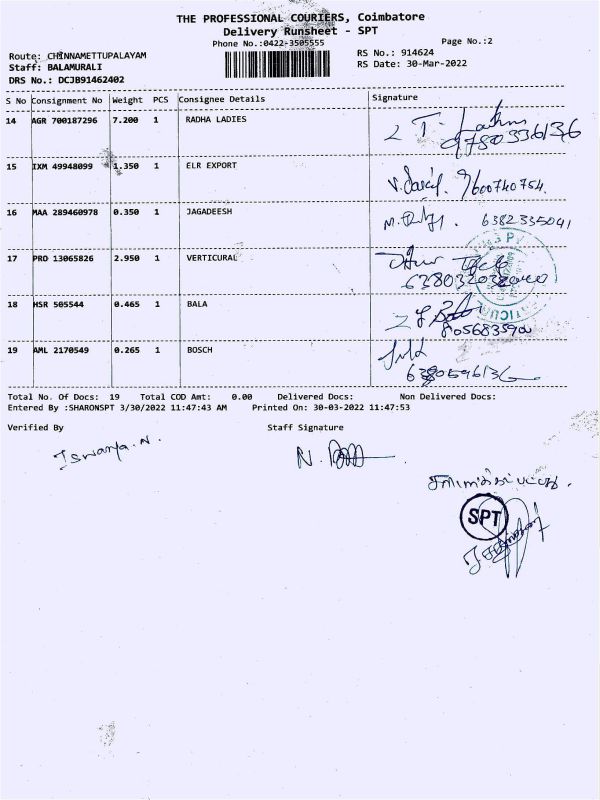 THE PROFESSIONAL COURIERS, Coimbatore
Delivery Runsheet - SPT
Phone No.:0422-3505555
Page No.:2
Route: CHINNAMETTUPALAYAM
RS No.: 914624
Staff: BALAMURALI
RS Date: 30-Mar-2022
DRS No.: DCJB91462402
S No Consignment No Weight PCS Consignee Details Signature
14 AGR 700187296 7.200 1 RADHA LADIES
15 IXM 49948099 1.350 1 ELR EXPORT
9600740754.
16 MAA 289460978 0.350 1 JAGADEESH
6382335041
17 PRO 13065826 2.950 1 VERTICURAL
18 HSR 505544 0.465 1 BALA
19 AML 2170549 0.265 1 BOSCH
Total No. Of Docs: 19 Total COD Amt: 0.00 Delivered Docs: Non Delivered Docs:
Entered By :SHARONSPT 3/30/2022 11:47:43 AM Printed On: 30-03-2022 11:47:53
Verified By Staff Signature
Iswarya.N.
SPT